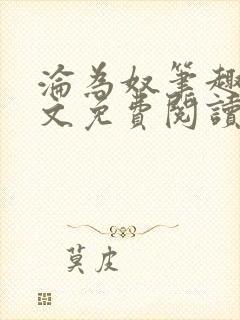 淪為奴筆趣
文免費閱讀
莫皮